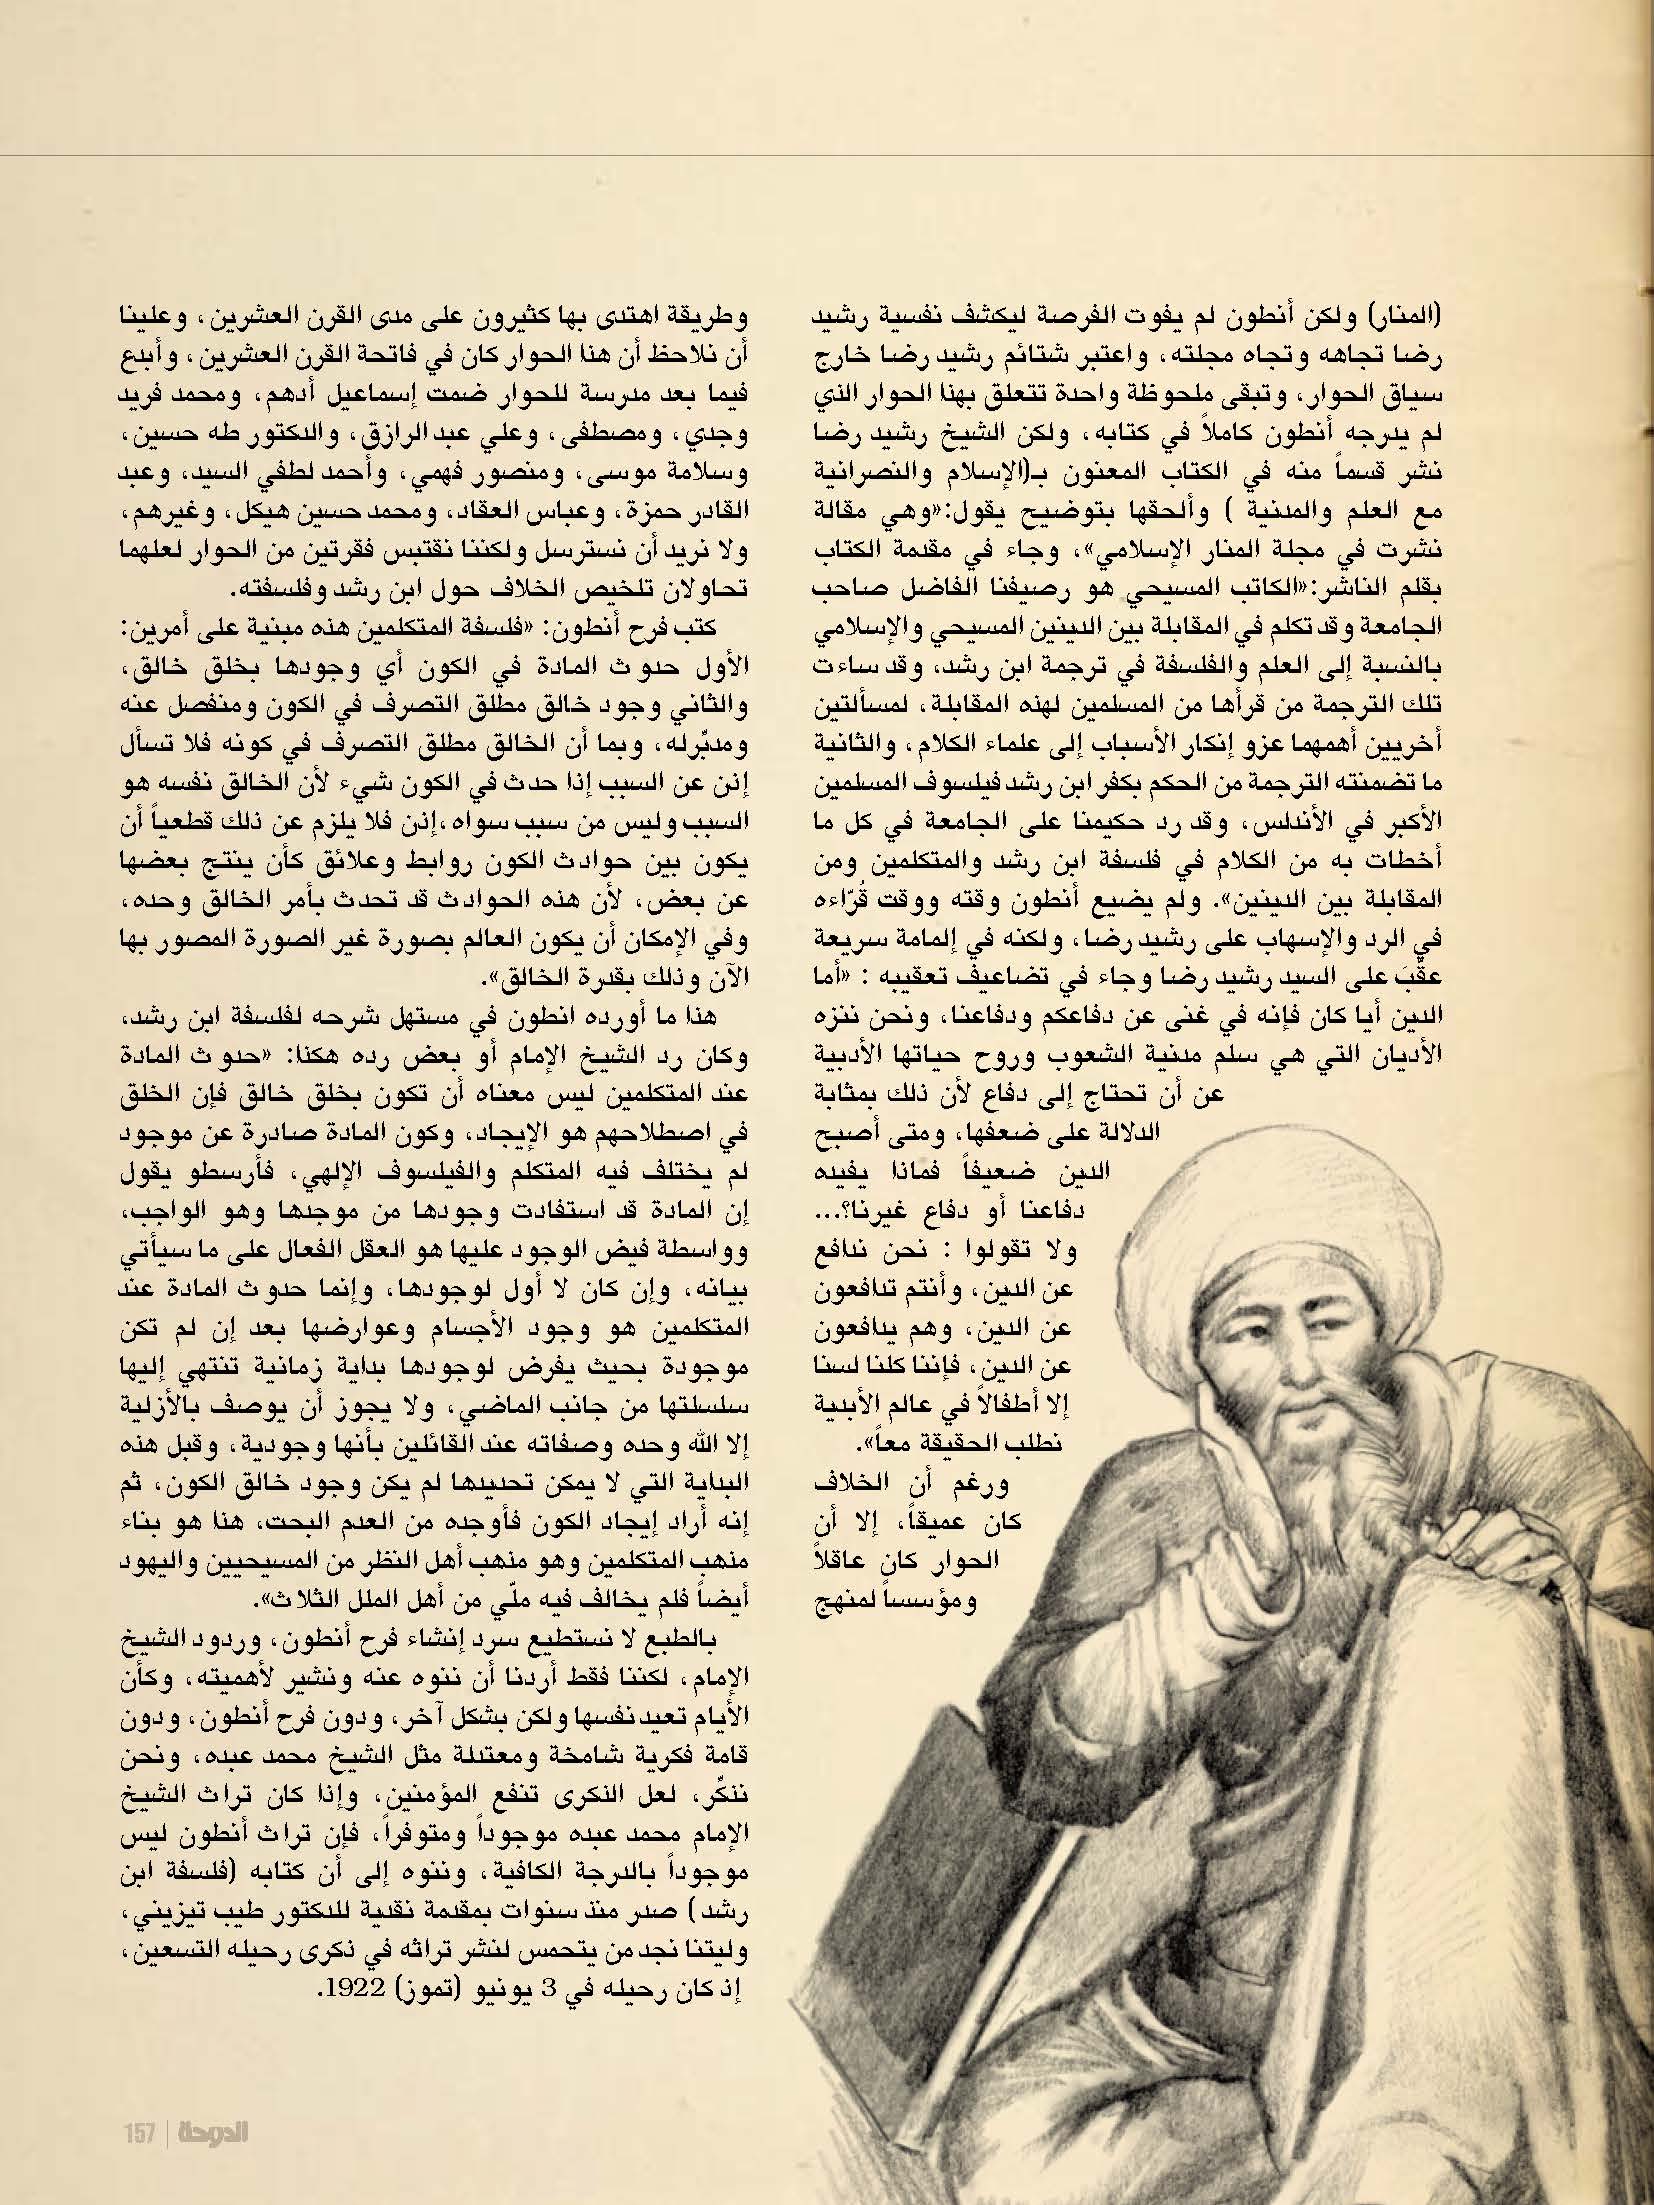 (المنار) ولكن أنطون لم يفوت الفرصة ليكشف نفسية رشيد
رضا تجاهه وتجاه مجلته، واعتبر شتائم رشيد رضا خارج
سياق الحوار، وتبقى ملحوظة واحدة تتعلق بهذا الحوار الذي
لم يدرجه أنطون كاملاً في كتابه، ولكن الشيخ رشيد رضا
نشر قسماً منه في الكتاب المعنون بـ(الإسلام والنصرانية
مع العلم والمدنية ) وألحقها بتوضيح يقول:«وهي مقالة
نشرت في مجلة المنار الإسلامي»، وجاء في مقدمة الكتاب
بقلم الناشر:«الكاتب المسيحي هو رصيفنا الفاضل صاحب
الجامعة وقد تكلم في المقابلة بين الدينين المسيحي والإسلامي
بالنسبة إلى العلم والفلسفة في ترجمة ابن رشد، وقد ساءت
تلك الترجمة من قرأها من المسلمين لهذه المقابلة، لمسألتين
أخريين أهمهما عزو إنكار الأسباب إلى علماء الكلام، والثانية
ما تضمنته الترجمة من الحكم بكفر ابن رشد فيلسوف المسلمين
الأكبر في الأندلس، وقد رد حكيمنا على الجامعة في كل ما
أخطات به من الكلام في فلسفة ابن رشد والمتكلمين ومن
المقابلة بين الدينين». ولم يضيع أنطون وقته ووقت قُرّاءه
في الرد والإسهاب على رشيد رضا، ولكنه في إلمامة سريعة
عقّبَ على السيد رشيد رضا وجاء في تضاعيف تعقيبه : «أما
الدين أيا كان فإنه في غنى عن دفاعكم ودفاعنا، ونحن ننزه
الأديان التي هي سلم مدنية الشعوب وروح حياتها الأدبية
عن أن تحتاج إلى دفاع لأن ذلك بمثابة
الدلالة على ضعفها، ومتى أصبح
الدين ضعيفاً فماذا يفيده
دفاعنا أو دفاع غيرنا؟...
ولا تقولوا : نحن ندافع
عن الدين، وأنتم تدافعون
عن الدين، وهم يدافعون
عن الدين، فإننا كلنا لسنا
إلا أطفالاً في عالم الأبدية
نطلب الحقيقة معاً».
ورغم أن الخلاف
كان عميقاً، إلا أن
الحوار كان عاقلاً
ومؤسساً لمنهج
وطريقة اهتدى بها كثيرون على مدى القرن العشرين، وعلينا
أن نلاحظ أن هذا الحوار كان في فاتحة القرن العشرين، وأبدع
فيما بعد مدرسة للحوار ضمت إسماعيل أدهم، ومحمد فريد
وجدي، ومصطفى، وعلي عبد الرازق، والدكتور طه حسين،
وسلامة موسى، ومنصور فهمي، وأحمد لطفي السيد، وعبد
القادر حمزة، وعباس العقاد، ومحمد حسين هيكل، وغيرهم،
ولا نريد أن نسترسل ولكننا نقتبس فقرتين من الحوار لعلهما
تحاولان تلخيص الخلاف حول ابن رشد وفلسفته.
كتب فرح أنطون: «فلسفة المتكلمين هذه مبنية على أمرين:
الأول حدوث المادة في الكون أي وجودها بخلق خالق،
والثاني وجود خالق مطلق التصرف في الكون ومنفصل عنه
ومدبِّر له، وبما أن الخالق مطلق التصرف في كونه فلا تسأل
إذن عن السبب إذا حدث في الكون شيء لأن الخالق نفسه هو
السبب وليس من سبب سواه،إذن فلا يلزم عن ذلك قطعياً أن
يكون بين حوادث الكون روابط وعلائق كأن ينتج بعضها
عن بعض، لأن هذه الحوادث قد تحدث بأمر الخالق وحده،
وفي الإمكان أن يكون العالم بصورة غير الصورة المصور بها
الآن وذلك بقدرة الخالق».
هذا ما أورده انطون في مستهل شرحه لفلسفة ابن رشد،
وكان رد الشيخ الإمام أو بعض رده هكذا: «حدوث المادة
عند المتكلمين ليس معناه أن تكون بخلق خالق فإن الخلق
في اصطلاحهم هو الإيجاد، وكون المادة صادرة عن موجود
لم يختلف فيه المتكلم والفيلسوف الإلهي، فأرسطو يقول
إن المادة قد استفادت وجودها من موجدها وهو الواجب،
وواسطة فيض الوجود عليها هو العقل الفعال على ما سيأتي
بيانه، وإن كان لا أول لوجودها، وإنما حدوث المادة عند
المتكلمين هو وجود الأجسام وعوارضها بعد إن لم تكن
موجودة بحيث يفرض لوجودها بداية زمانية تنتهي إليها
سلسلتها من جانب الماضي، ولا يجوز أن يوصف بالأزلية
إلا الله وحده وصفاته عند القائلين بأنها وجودية، وقبل هذه
البداية التي لا يمكن تحديدها لم يكن وجود خالق الكون، ثم
إنه أراد إيجاد الكون فأوجده من العدم البحت، هذا هو بناء
مذهب المتكلمين وهو مذهب أهل النظر من المسيحيين واليهود
أيضاً فلم يخالف فيه ملّي من أهل الملل الثلاث».
بالطبع لا نستطيع سرد إنشاء فرح أنطون، وردود الشيخ
الإمام، لكننا فقط أردنا أن ننوه عنه ونشير لأهميته، وكأن
الأيام تعيد نفسها ولكن بشكل آخر، ودون فرح أنطون، ودون
قامة فكرية شامخة ومعتدلة مثل الشيخ محمد عبده، ونحن
نذكِّر، لعل الذكرى تنفع المؤمنين، وإذا كان تراث الشيخ
الإمام محمد عبده موجوداً ومتوفراً، فإن تراث أنطون ليس
موجوداً بالدرجة الكافية، وننوه إلى أن كتابه (فلسفة ابن
رشد) صدر منذ سنوات بمقدمة نقدية للدكتور طيب تيزيني،
وليتنا نجد من يتحمس لنشر تراثه في ذكرى رحيله التسعين،
إذ كان رحيله في 3 يونيو (تموز) 1922.
الدوحة | 157